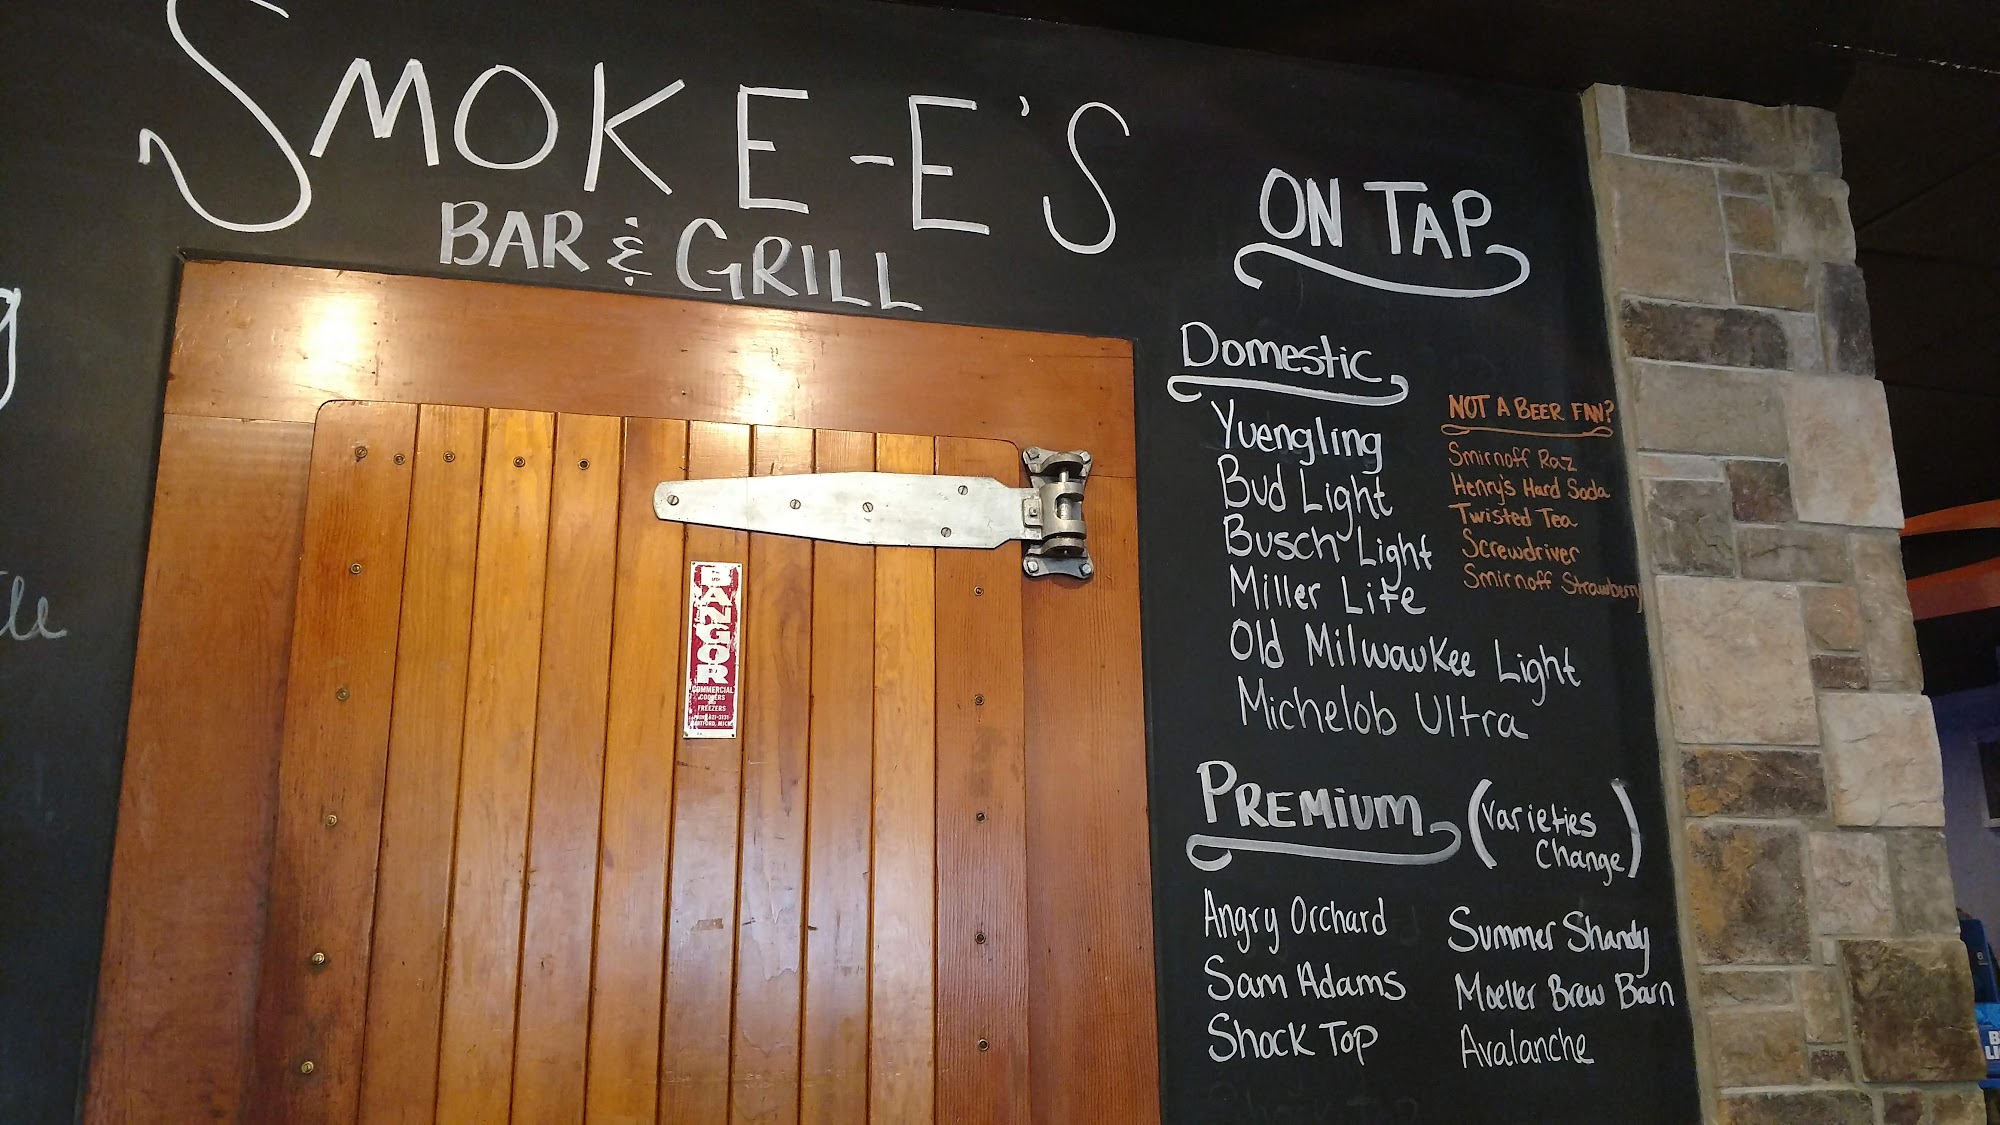 SMOKE-E'S
BAR & GRILL
ON TAP
Domestic
Yuengling
Bud Light
Busch Light
Miller Lite
Old Milwaukee Light
Michelob Ultra
NOT A BEER FAN?
Smirnoff Raz
Henry's Hard Soda
Twisted Tea
Screwdriver
Smirnoff Strawberry
PREMIUM
(Varieties
Change)
Angry Orchard
Sam Adams
Shock Top
Summer Shandy
Moeller Brew Barn
Avalanche
BANGOR
COMMERCIAL
COOLERS
&
FREEZERS
HARTFORD, MICH.